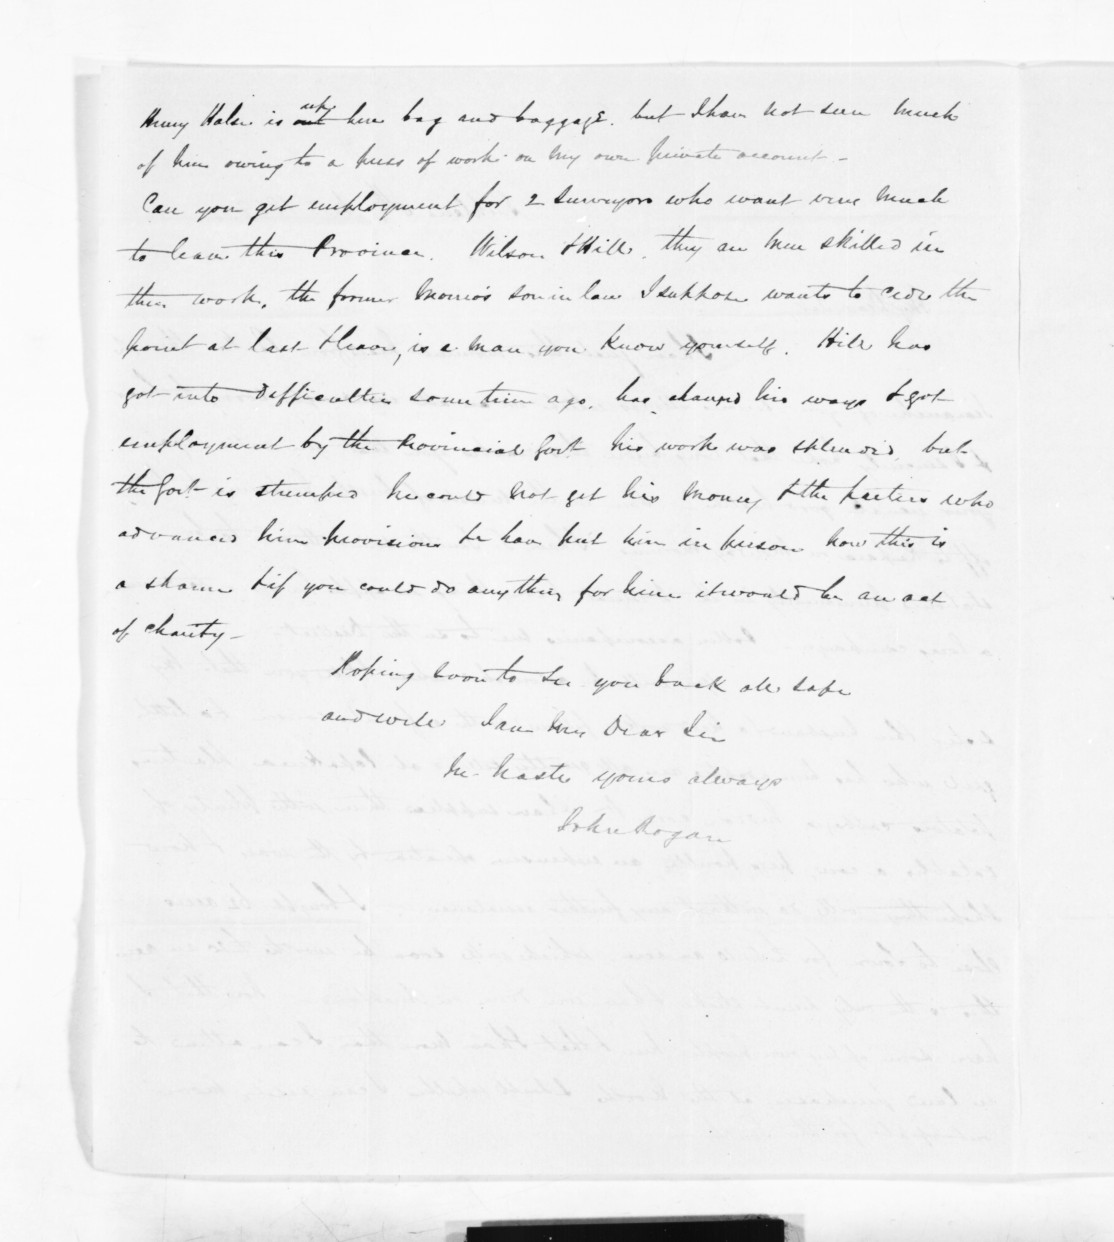 Henry Halse is up here bag and baggage. but I have not seen much
of him owing to a press of work on my own private account -
Can you get employment for 2 Surveyors who want very much
to leave this Province. Wilson & Hill. they are men skilled in
their work. the former Morris's son in law I suppose wants to cede the
point at last & leave, is a man you know yourself. Hill has
got into difficulties some time ago. has changed his ways & got
employment by the Provincial Govt his work was splendid but
the Govt is stumped he could not get his money & the parties who
advanced him provisions &c have put him in prison now this is
a shame & if you could do anything for him it would be an act
of charity -
Hoping soon to see you back all safe
and well I am My Dear Sir
In haste yours always
John Rogan